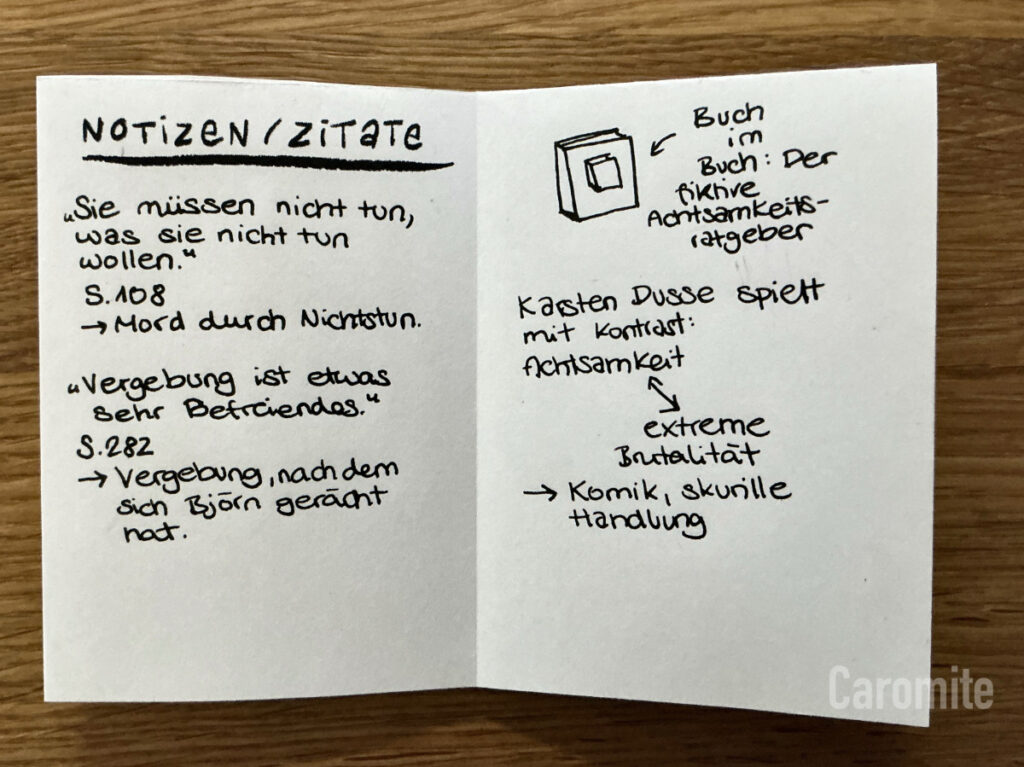 NOTIZEN / ZITATE
„Sie müssen nicht tun,
was sie nicht tun
wollen.“
S. 108
→ Mord durch Nichtstun.
„Vergebung ist etwas
sehr Befreiendes.“
S. 282
→ Vergebung, nach dem
sich Björn gerächt
hat.
Buch
im
Buch: Der
fiktive
Achtsamkeits-
ratgeber
Karsten Dusse spielt
mit Kontrast:
Achtsamkeit
extreme
Brutalität
→ Komik, skurille
Handlung
Caromite